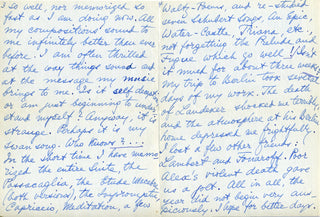 3 so well, nor memorized so
fast as I am doing now. All
my compositions sound to
me infinitely better than ever
before. I am often thrilled
at the way things sound and
at the message my music
brings to me. Is it self-decept.
or am just beginning to under-
stand myself? Anyway, it is
strange. Perhaps it is my
swan song. Who knows?...
In the short time I have memo-
rized the entire Suite, the
Passacaglia, the Etude
(both versions), the improvised
Capriccio, Meditation, a few
Walt-Poems, and re-studied
seven Schubert songs, An Epic,
Water-Castle, Triana, etc.
not forgetting the Prelude and
Fugue which go well. I lost
not much for about three weeks,
my trip to Berlin took several
days of my work. The death
of Landeker shocked me terribly,
and the atmosphere at his Berlin
home depressed me frightfully.
I lost a few other friends:
Lambert and Poor
Alexa's violent death gave
us a jolt. All in all, the
year did not begin very aus-
piciously. I hope for better days.